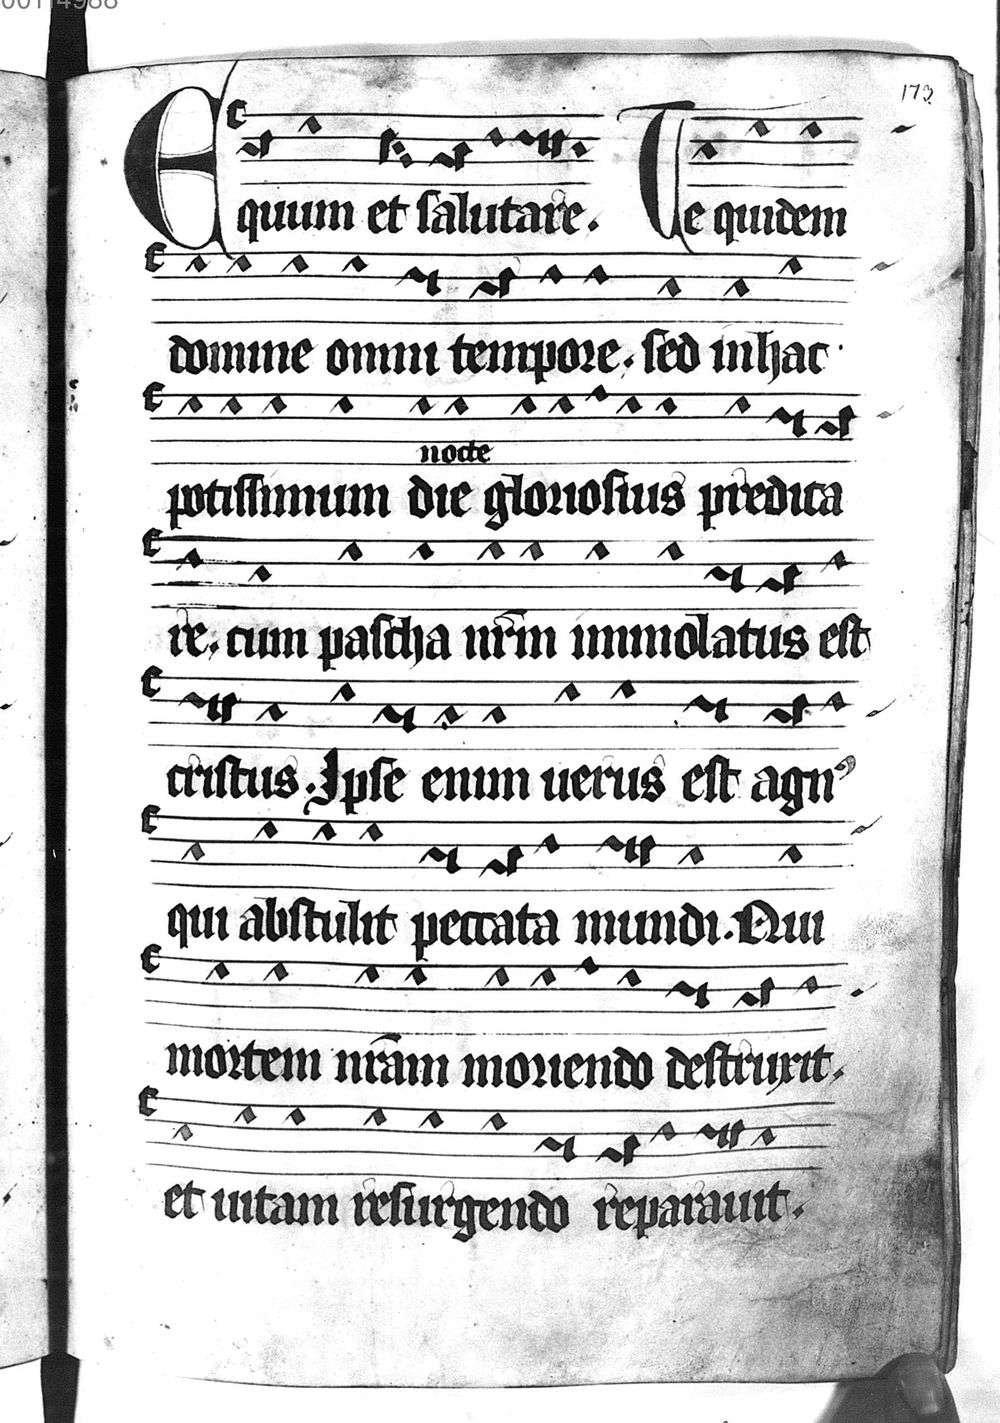 00114988
173
Equum et salutare. Te quidem
domine omni tempore. sed inhac
nocte
potissimum die gloriosius predica
re. cum pascha nr̄m immolatus est
cristus. Ipse enim uerus est agn⁹
qui abstulit peccata mundi. Qui
mortem nr̄am moriendo destruxit.
et uitam resurgendo reparauit.